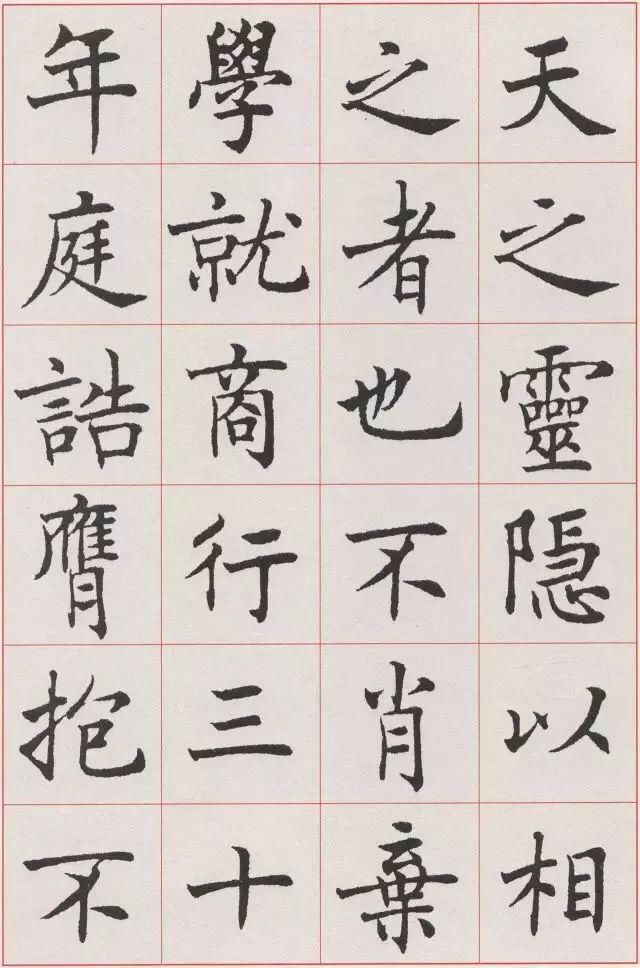 天之靈隠以相
之者也不肖棄
學就商行三十
年庭誥膺抱不